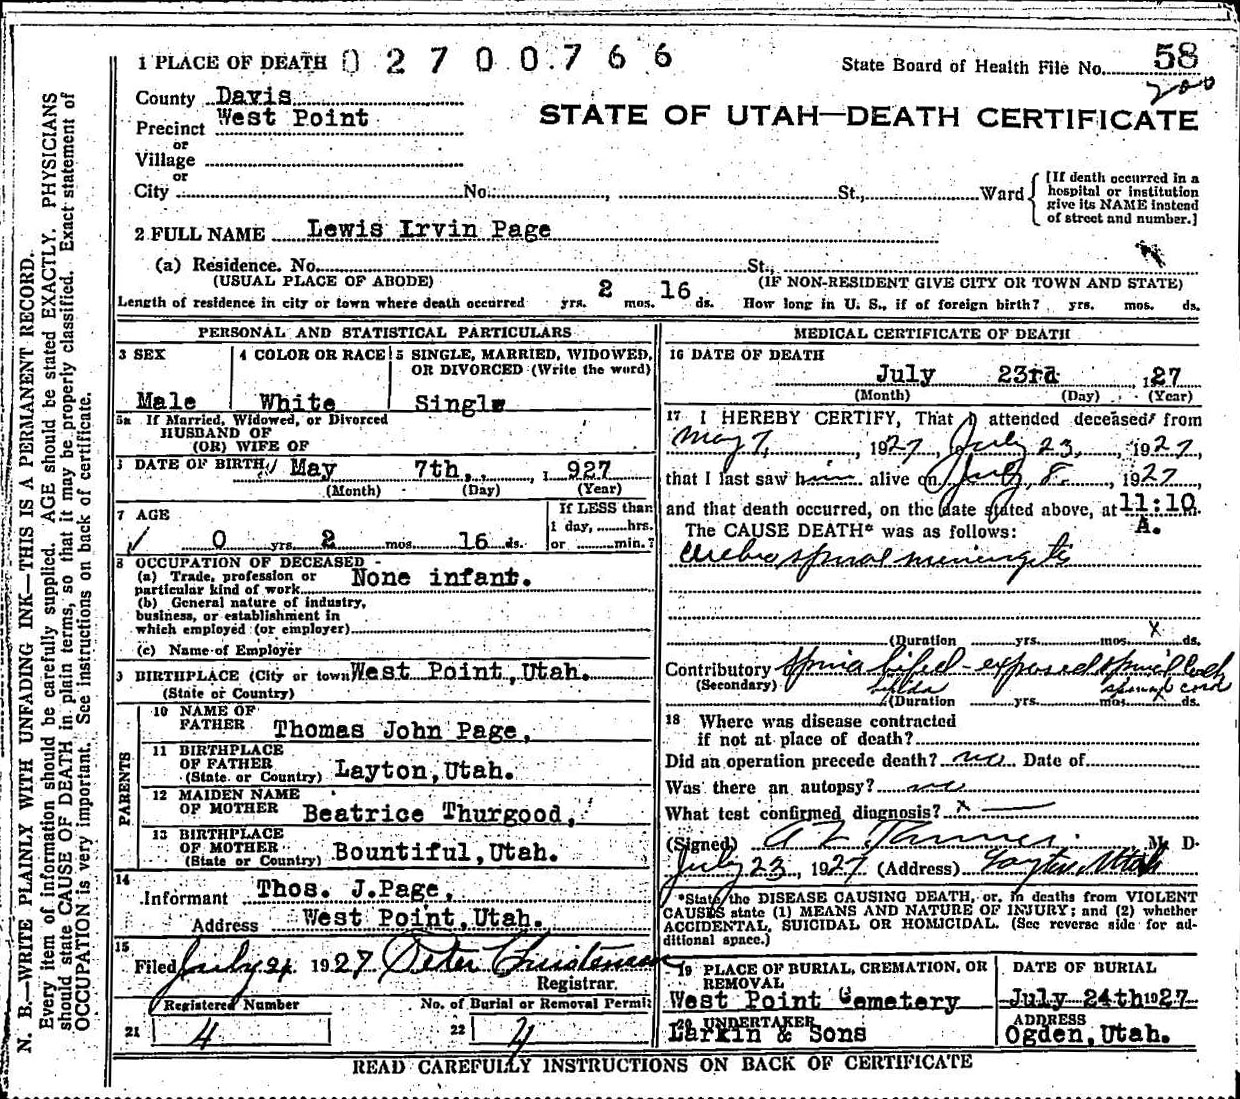 N. B.—WRITE PLAINLY WITH UNFADING INK—THIS IS A PERMANENT RECORD.
Every item of information should be carefully supplied. AGE should be stated EXACTLY. PHYSICIANS
should state CAUSE OF DEATH in plain terms, so that it may be properly classified. Exact statement of
OCCUPATION is very important. See instructions on back of certificate.
1 PLACE OF DEATH 0 2 7 0 0.7 6 6
State Board of Health File No. 58
200
County Davis
STATE OF UTAH—DEATH CERTIFICATE
Precinct West Point
or
Village
or
City No. , St., Ward
[If death occurred in a
hospital or institution
give its NAME instead
of street and number.]
2 FULL NAME Lewis Irvin Page
(a) Residence. No. St.,
(USUAL PLACE OF ABODE) (IF NON-RESIDENT GIVE CITY OR TOWN AND STATE)
Length of residence in city or town where death occurred yrs. 2 mos. 16 ds. How long in U. S., if of foreign birth? yrs. mos. ds.
PERSONAL AND STATISTICAL PARTICULARS
3 SEX
Male
4 COLOR OR RACE
White
5 SINGLE, MARRIED, WIDOWED,
OR DIVORCED (Write the word)
Single
5a If Married, Widowed, or Divorced
HUSBAND OF
(OR) WIFE OF
DATE OF BIRTH May 7th, 1 927
(Month) (Day) (Year)
7 AGE
0 yrs. 2 mos. 16 ds.
If LESS than
1 day, hrs.
or min.?
8 OCCUPATION OF DECEASED
(a) Trade, profession or
particular kind of work None infant.
(b) General nature of industry,
business, or establishment in
which employed (or employer)
(c) Name of Employer
9 BIRTHPLACE (City or town West Point, Utah.
(State or Country)
PARENTS
10 NAME OF
FATHER Thomas John Page,
11 BIRTHPLACE
OF FATHER
(State or Country) Layton, Utah.
12 MAIDEN NAME
OF MOTHER Beatrice Thurgood,
13 BIRTHPLACE
OF MOTHER
(State or Country) Bountiful, Utah.
14
Informant Thos. J.Page,
Address West Point, Utah.
15
Filed July 24 1927 Peter Christensen
Registrar.
Registered Number No. of Burial or Removal Permit
21 4 22 4
MEDICAL CERTIFICATE OF DEATH
16 DATE OF DEATH
July 23rd , 127
(Month) (Day) (Year)
17 I HEREBY CERTIFY, That I attended deceased from
May 7, , 1927, July 23, , 1927,
that I last saw him alive on July 8. , 1927,
and that death occurred, on the date stated above, at 11:10 m.
A.
The CAUSE DEATH* was as follows:
cerebro spinal meningitis
(Duration yrs. mos. x ds.
Contributory spina bifid - exposed spinal cord
(Secondary) bifida spinal cord
(Duration yrs. mos. ds.
18 Where was disease contracted
if not at place of death?
Did an operation precede death? no Date of
Was there an autopsy? no
What test confirmed diagnosis? x
(Signed) A Z Tanner M. D.
July 23, 1927 (Address) Layton Utah
*State the DISEASE CAUSING DEATH, or, in deaths from VIOLENT
CAUSES state (1) MEANS AND NATURE OF INJURY; and (2) whether
ACCIDENTAL, SUICIDAL OR HOMICIDAL. (See reverse side for ad-
ditional space.)
19 PLACE OF BURIAL, CREMATION, OR
REMOVAL
West Point Cemetery
DATE OF BURIAL
July 24th 1927
20 UNDERTAKER
Larkin & Sons
ADDRESS
Ogden, Utah.
READ CAREFULLY INSTRUCTIONS ON BACK OF CERTIFICATE